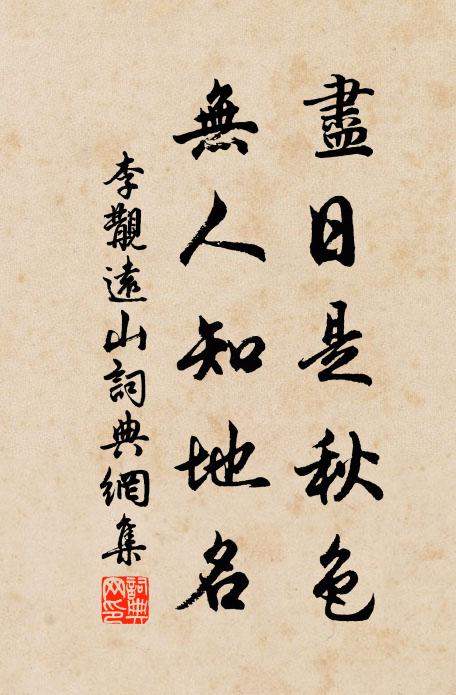 盡日是秋色
無人知地名
李覯遠山詞典網集
詞典網印